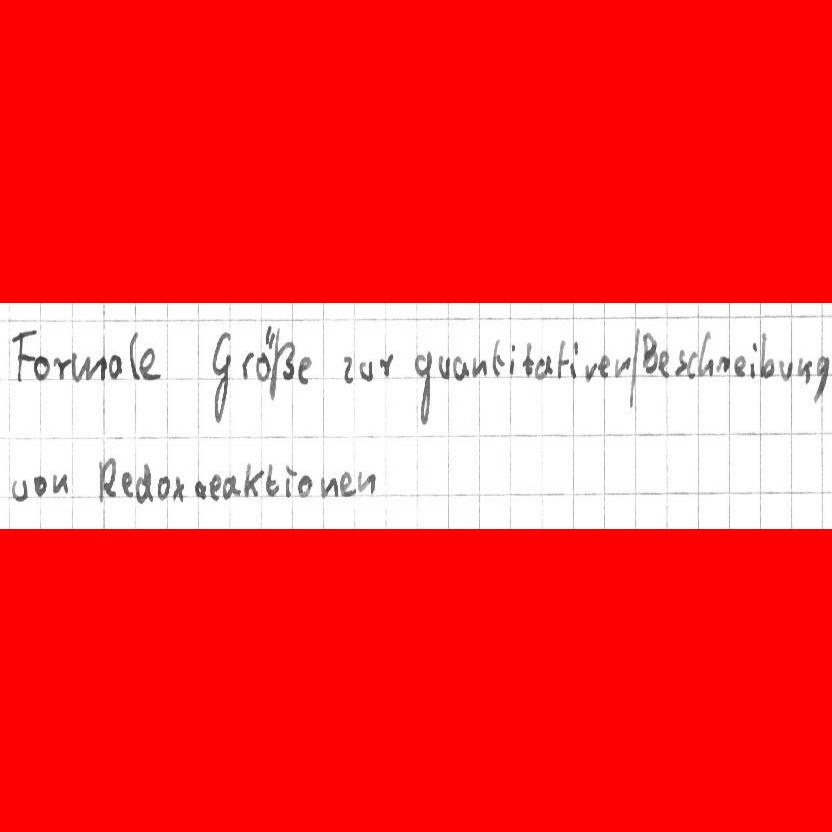 Formale Größe zur quantitativen/Beschreibung
von Redoxreaktionen